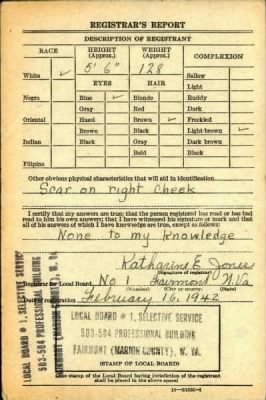 REGISTRAR'S REPORT
DESCRIPTION OF REGISTRANT
RACE HEIGHT (Approx.) WEIGHT (Approx.) COMPLEXION
White ✓ 5' 6" 128 Sallow
Light
EYES HAIR
Negro Blue ✓ Blonde Ruddy
Gray Red Dark
Oriental Hazel Brown ✓ Freckled
Brown Black Light brown ✓
Indian Black Gray Dark brown
Bald Black
Filipino
Other obvious physical characteristics that will aid in identification
Scar on right cheek
I certify that my answers are true; that the person registered has read or has had
read to him his own answers; that I have witnessed his signature or mark and that
all of his answers of which I have knowledge are true, except as follows:
None to my knowledge
Katharine E. Jones
(Signature of registrar)
Registrar for Local Board No 1 Fairmont W.Va
(Number) (City or county) (State)
Date of registration February 16, 1942
LOCAL BOARD # 1, SELECTIVE SERVICE
503-504 PROFESSIONAL BUILDING
FAIRMONT (MARION COUNTY), W. VA.
LOCAL BOARD # 1, SELECTIVE SERVICE
503-504 PROFESSIONAL BUILDING
FAIRMONT (MARION COUNTY), W. VA.
(STAMP OF LOCAL BOARD)
(The stamp of the Local Board having jurisdiction of the registrant
shall be placed in the above space)